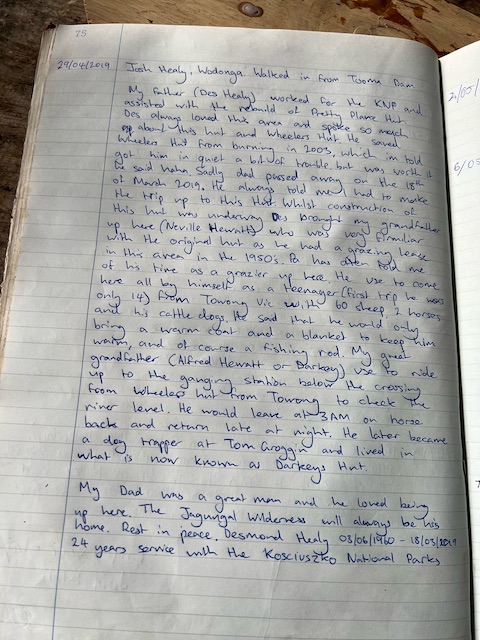 78
29/04/2019 Josh Healy, Wodonga. Walked in from Tooma Dam
My father (Des Healy) worked for the KNP and
assisted with the rebuild of Pretty Plain Hut.
Des always loved this area and spoke so much
about this hut and Wheelers Hut. He saved
Wheelers Hut from burning in 2003, which im told it
got him in quiet a bit of trouble but was worth it
he said haha. Sadly dad passed away on the 18th
of March 2019. He always told me I had to make
the trip up to this Hut. Whilst construction of
this hut was underway Des brought my grandfather
up here (Neville Hewatt) who was very firmiliar
with the original hut as he had a grazing lease
in this area in the 1950's. Pa has often told me
of his time as a grazier up here. He use to come
here all by himself as a teenager (first trip he was
only 14) from Towong Vic with 60 sheep, 2 horses
and his cattle dogs. He said that he would only
bring a warm coat and a blanket to keep him
warm, and of course a fishing rod. My great
grandfather (Alfred Hewatt or Darkey) use to ride
up to the ganging station below the crossing
from wheelers hut from Towong to check the
river level. He would leave at 3AM on horse
back and return late at night. He later became
a dog trapper at Tom Groggin and lived in
what is now known as Darkeys Hut.
My Dad was a great man and he loved being
up here. The Jagungal Wilderness will always be his
home. Rest in peace. Desmond Healy 03/06/1960 - 18/03/2019
24 years service with the Kosciuszko National Parks